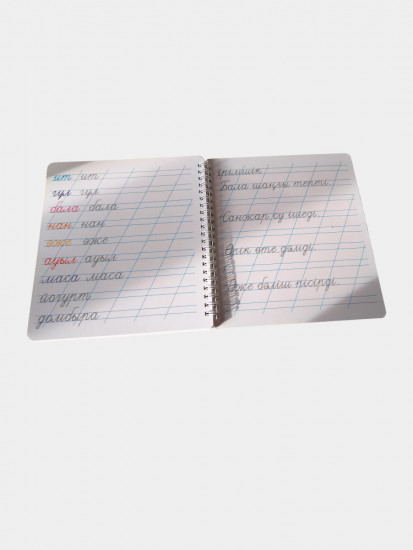 ит ит
гүл гүл
бала бала
нан нан
әже әже
ауыл ауыл
маса маса
йогурт
домбыра
ірімшік
Бала шаңғы тепті.
Санжар су ішеді.
Өрік өте дәмді.
Әже бәліш пісірді.